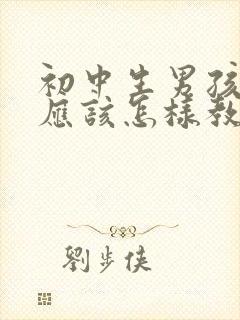 初中生男孩
应该怎样教
劉步俠